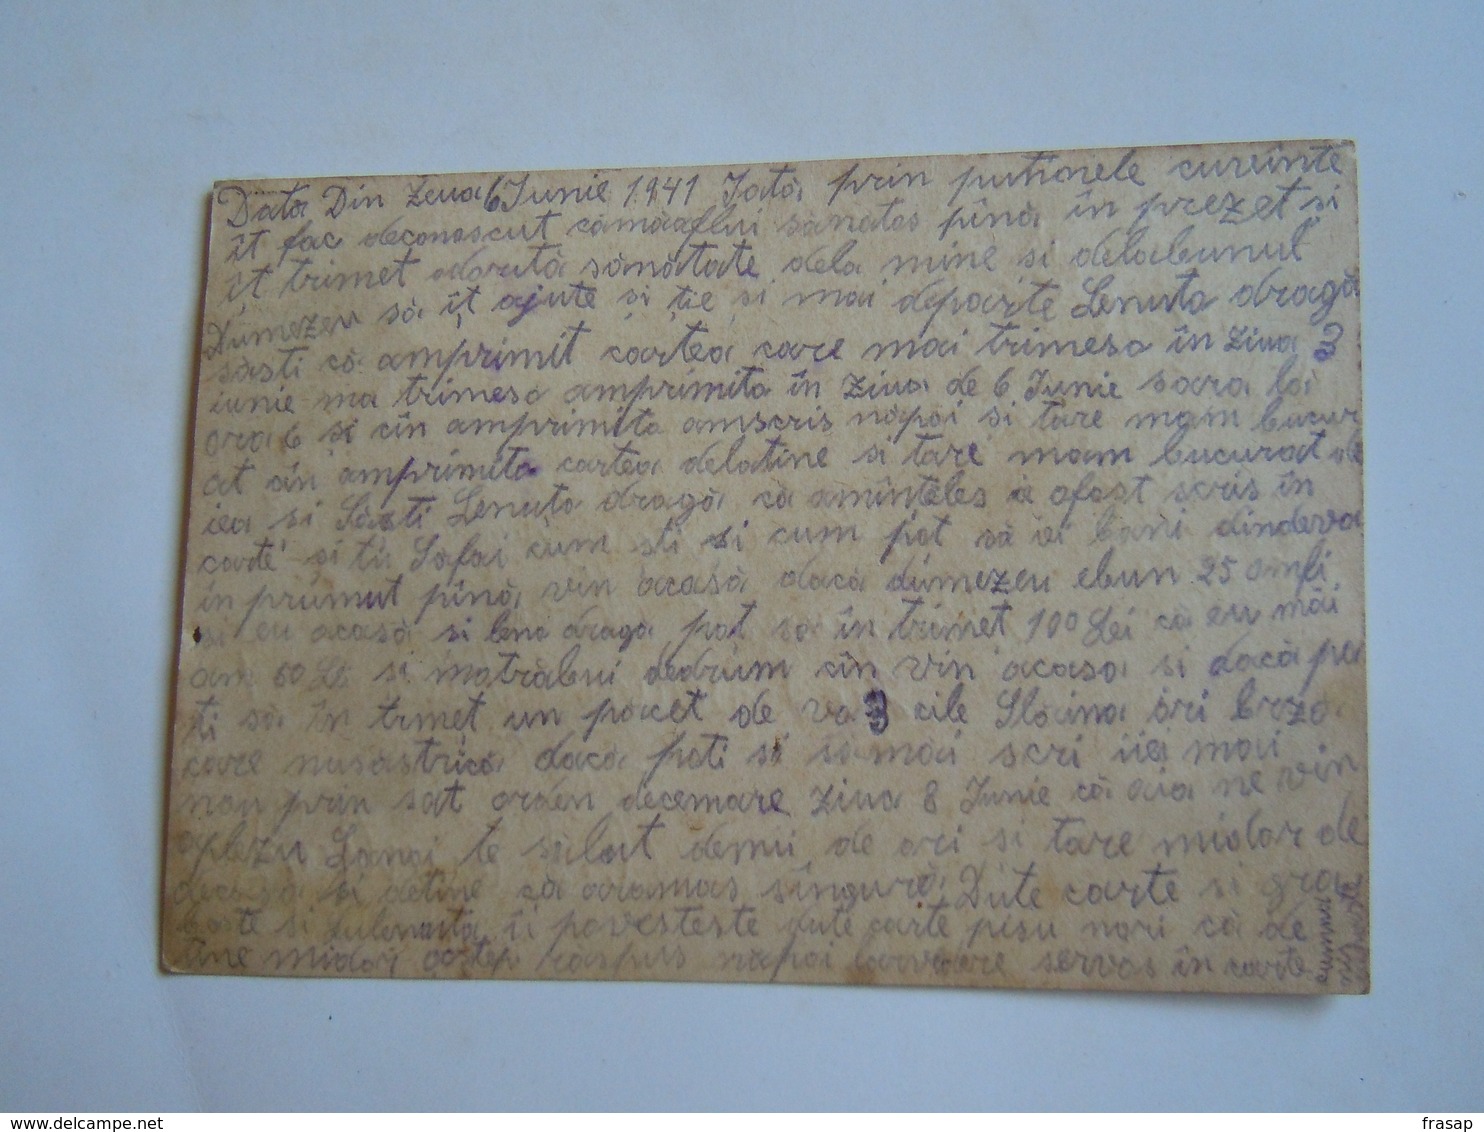 Data Din Zeua 6 Iunie 1941 Iată prin puținele cuvinte
ît fac deconoscut că sănatos pînă în prezet și
ît trimet adorită sănătate dela mine si delabunul
Dumezeu să ît ajute și ție si mai departe Lenuta dragă
săsti că amprimit cartea care mai trimesa în ziua 3
iunie ma trimesa amprimito în ziua de 6 Iunie sara la
ora 6 și cîn amprimito amscris năpoi si tare mam bucur
at cîn amprimito cartea delatine si tare mam bucurat de
iea si Săsti Lenuta dragă că amînteles ce afost scris în
carte și tu Safai cum sti si cum pot să ei bani dindeva
în prumut pînă vin acasă dacă dumezeu ebun 25 omfi
si eu acasă si leno dragă pot să în trimet 100 Lei că eu măi
am 60 Lei si matrăbui dedrum cîn vin acasa si dacă po
ti să în trmet un pacet de va 3 cile Slăina ori brozo
care nusăstrica daca poti si să măi scri iiei mai
nou prin sat orden decemare ziua 8 Iunie că aia ne vin
aplezu te sălut demii de ori si tare miodor de
si detine că aramas sîngură Dute carte si gra
beste si ii povesteste dute carte pisu nori că de
tine midor astep răspus năpoi lavedere servos în carte